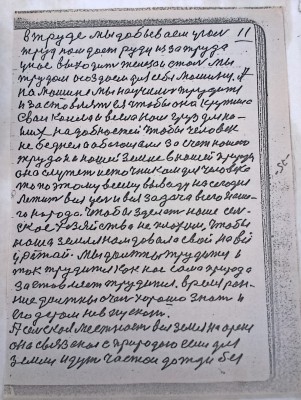 в труде мы добываем угон 11
труд нам дает руду из за труда
у нас выходит жеща стол мы
трудом создаем для себя машины. И
на машине мы научимся трудится
и заставляется чтобы она кружила
свои колеса весла нам груз для на-
ших надобностей чтобы человек
не беднел а обогощал за счет нашего
труда на нашей земле в нашей природи
она служит источником для человека
то поэтому всему выводу на сегодня
вся цель вся задача всего наше-
го народа. Чтобы зделать наше сель-
ское хозяйство не плохим, чтобы
наша земля нам довала свой новый
урожай. Мы должны трудится и
так трудится как нас сама природа
заставляет трудится. время ран-
ние должны очен хорошо знать и
его даром не впускат.
А сельская местност вся земля на арене
она связаная с природаю если для
земли идут частои дожди без